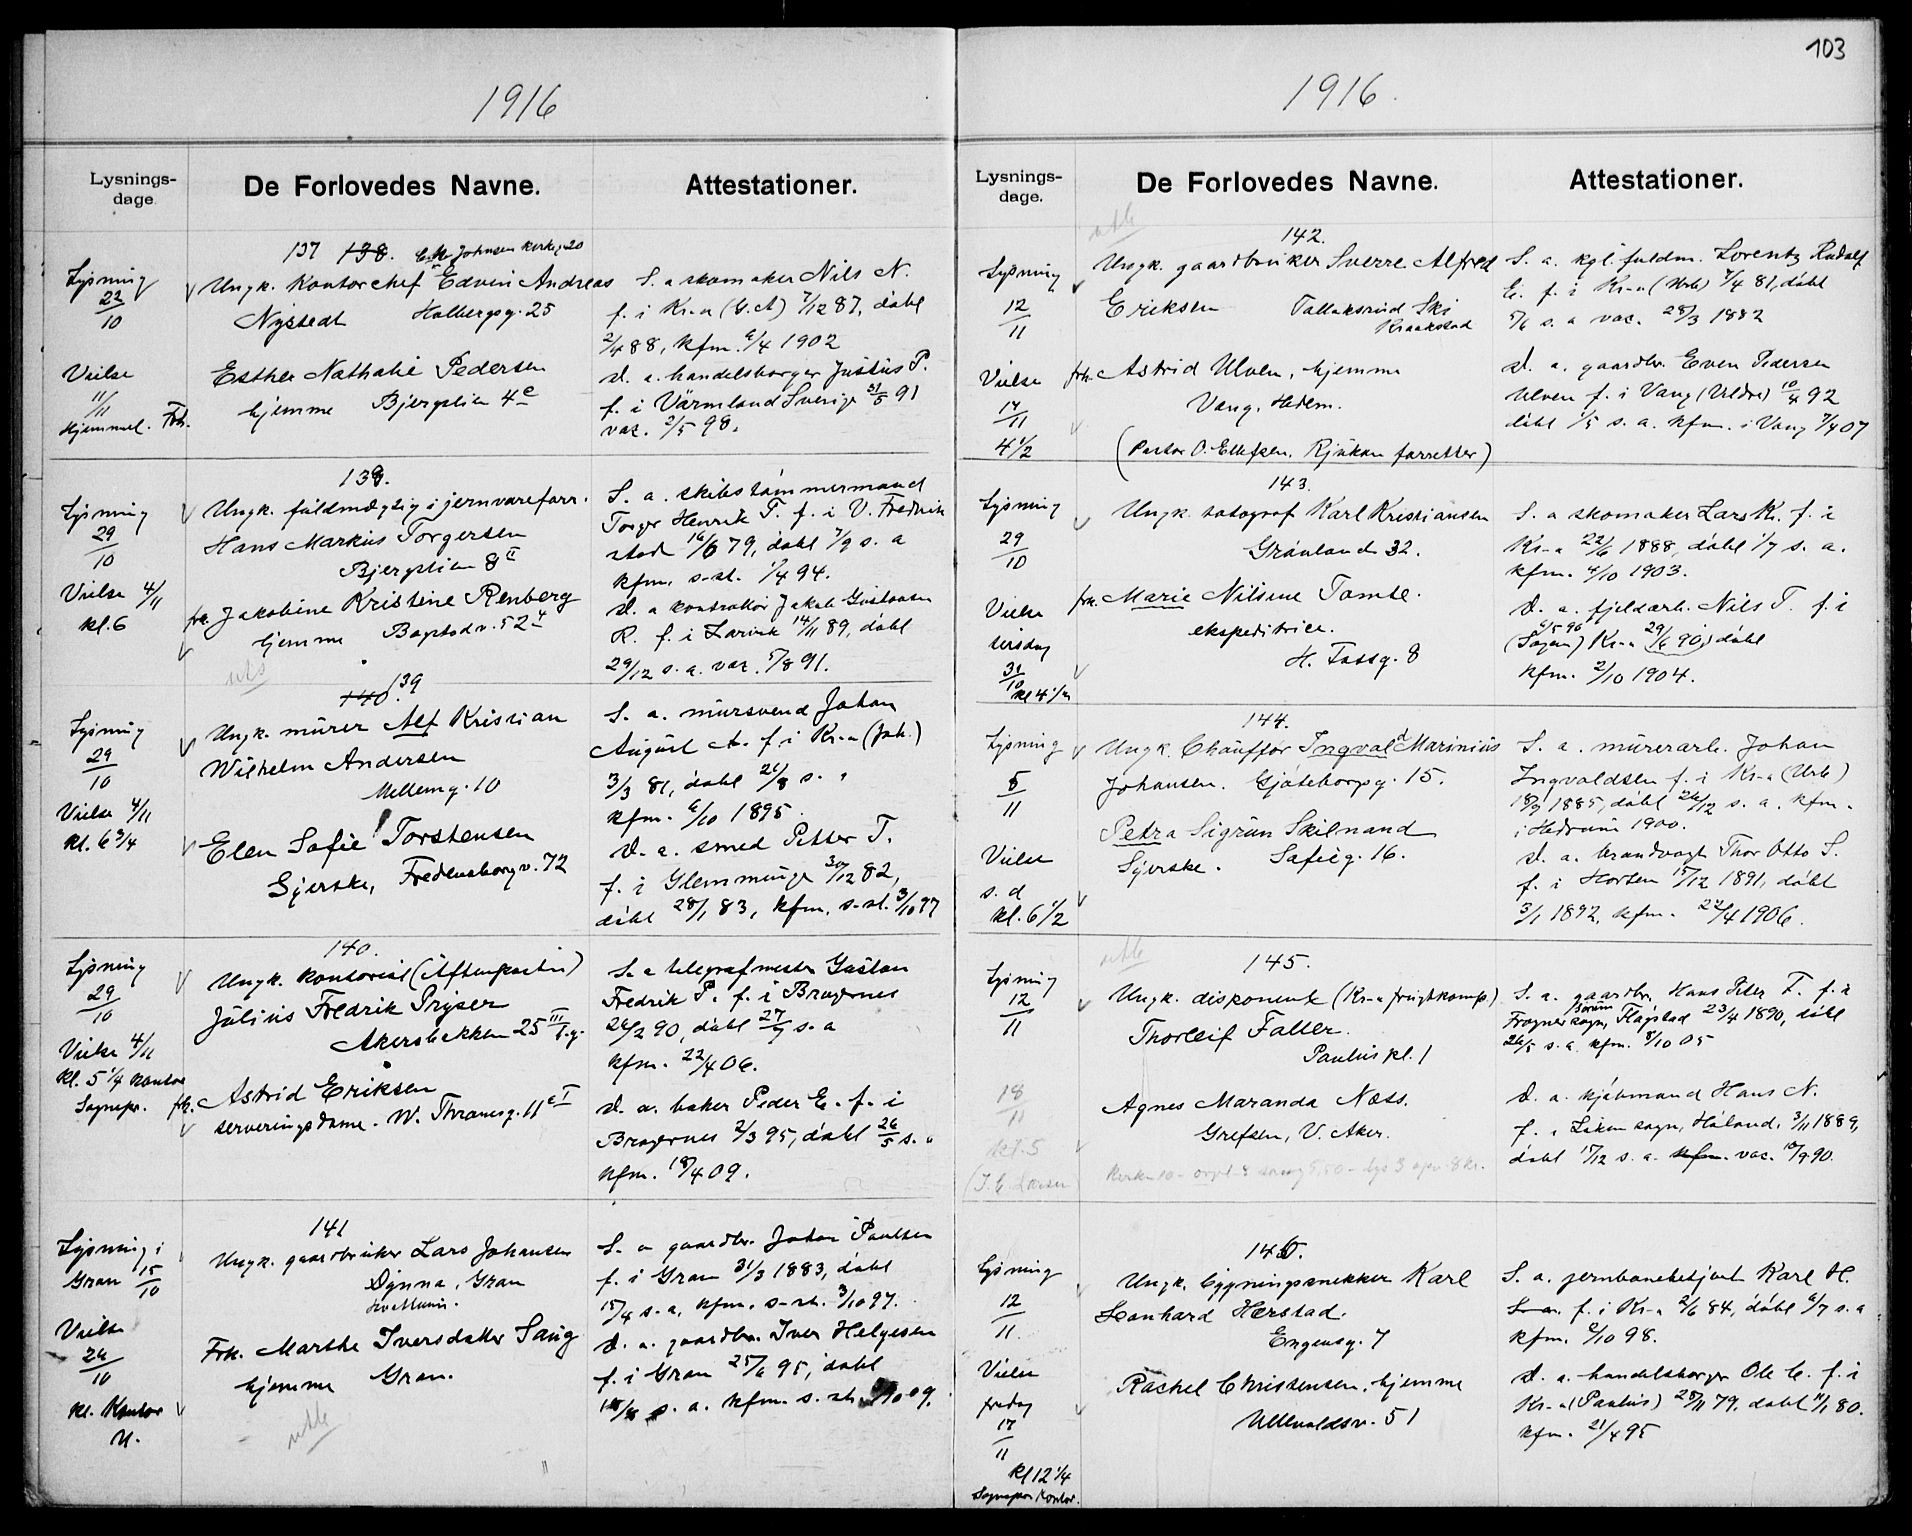 103
1916
Lysnings-
dage.
De Forlovedes Navne.
Attestationer.
137 138. Johnsen Kirkeg. 20
Lysning
22/10
Ungk. Kontorchef Edvin Andreas
Nystedt Holbergsg. 25
S. a. skomaker Nils N.
f. i Kr.a (G.A) 7/12 87, døbt
2/4 88, kfm. 6/4 1902
Vielse
11/11
Hjemmel. Frk.
Esther Nathalie Pedersen
hjemme Bjergstien 4c
D. a. handelsborger Justus P.
f. i Värmland Sverige 31/5 91
vac. 2/5 98.
138.
Lysning
29/10
Ungk. fuldmægtig i jernvareforr.
Hans Markus Torgersen
Bjergstien 8 II
S. a. skibstømmermand
Torger Henrik T. f. i V. Fredrik
stad 16/6 79, døbt 7/9 s. a
kfm. s-st. 1/4 94.
Vielse 4/11
kl. 6
frk. Jakobine Kristine Renberg
hjemme Bogstadv. 52
D. a. kontrollør Jakob Gustavsen
R. f. i Larvik 14/11 89, døbt
29/12 s. a. vac. 5/8 91.
140. 139
Lysning
29/10
Ungk. murer Alf Kristian
Wilhelm Andersen
Mellemg. 10
S. a. mursvend Johan
August A. f. i Kr.a (Joh.)
3/3 81, døbt 21/8 s. "
kfm. 6/10 1895.
Vielse 4/11
kl. 6 3/4
Elen Sofie Torstensen
Syerske, Fredensborgv. 72
D. a. smed Petter T.
f. i Glemminge 30/12 82,
døbt 28/1 83, kfm. s-st. 3/10 97
140.
Lysning
29/10
Ungk. kontorist (Aftenposten)
Julius Fredrik Pryser
Akersbekken 25 III
S. a telegrafmester Gustav
Fredrik P. f. i Bragernes
26/2 90, døbt 27/7 s. a
kfm. 22/4 06.
Vielse 4/11
kl. 5 1/4 kontor
Sognepr.
frk. Astrid Eriksen
serveringsdame. W. Thranesg. 11c I
D. a. baker Peder E. f. i
Bragernes 2/3 95, døbt 26/5 s. a
kfm. 18/4 09.
141
Lysning i
Gran 15/10
Ungk. gaardbruker Lars Johansen
Dynna, Gran
S. a gaardbr. Johan Paulsen
f. i Gran 31/3 1883, døbt
15/4 s. a. kfm. s-st. 3/10 97.
Vielse
26/10
kl. Kontor
Frk. Marthe Iversdatter Saug
hjemme Gran.
D. a. gaardbr. Iver Helgesen
f. i Gran 25/6 95, døbt
s. a. kfm. s. st. 09.
utb
1916.
Lysnings-
dage.
De Forlovedes Navne.
Attestationer.
utb
142.
Lysning
12/11
Ungk. gaardbruker Sverre Alfred
Eriksen Tallaksrud Ski
Kraakstad
S. a. kgl. fuldm. Lorentz Rudolf
E. f. i Kr.a (Urb) 7/4 81, døbt
5/6 s. a vac. 28/3 1882
Vielse
17/11
4 1/2
frk. Astrid Ulven, hjemme
Vang, Hedem.
(Pastor O. Ellefsen, Rjukan forretter)
D. a. gaardbr. Even Pedersen
Ulven f. i Vang (Uldre) 10/4 92
døbt 1/5 s. a. kfm. i Vang 7/4 07
143.
Lysning
29/10
Ungk. Karl Kristiansen
Grønland 32.
S. a skomaker Lars K. f. i
Kr.a 22/6 1888, døbt 1/7 s. a.
kfm. 4/10 1903.
Vielse
tirsdag
31/10
kl 4 1/2
frk. Marie Nilsine Tomte.
ekspeditrice.
H. Tossg. 8
D. a. fjeldarb. Nils T. f. i
(Sagen) Kr.a 29/6 90, døbt
kfm. 2/10 1904.
144.
Lysning
5/11
Ungk. Chauffør Ingvald Marinius
Johansen. Gjøteborgg. 15.
S. a. murerarb. Johan
Ingvaldsen f. i Kr.a (Urb)
1885, døbt 26/12 s. a. kfm.
i Hedrum 1900.
Vielse
s. d
kl. 6 1/2
Petra Sigrun Skilnand
Syerske. Sofieg. 16.
D. a. brandvagt Thor Otto S.
f. i Horten 15/12 1891, døbt
3/1 1892, kfm. 22/4 1906.
utb
145.
Lysning
12/11
Ungk. disponent (Kr.a frugtkomp)
Thorleif Falter.
Paulus kl. 1
S. a. gaardbr. Hans Peter F. f. i
Frogner sogn, Flagstad 23/4 1890, døbt
26/5 s. a. kfm. 8/10 05
18/11
kl. 5
(J. E. Larsen)
Agnes Maranda Næss.
Grefsen, V. Aker.
D. a. kjøbmand Hans N.
f. i Løken sogn, Høland, 3/11 1889,
døbt 15/12 s. a. kfm. vac. 18/9 90.
146.
Lysning
12/11.
Ungk. bygningssnekker Karl
Leonhard Herstad.
Engensg. 7
S. a. jernbanebetjent Karl H.
f. i Kr.a 2/6 84, døbt 6/7 s. a
kfm. 2/10 98.
Vielse
fredag
17/11
kl 12 1/4
Sognepr. Kontor.
Rachel Christensen, hjemme
Ullevoldsv. 51
D. a. handelsborger Ole C. f. i
Kr.a (Paulus) 28/11 79, døbt 11/1 80.
kfm. 21/4 95